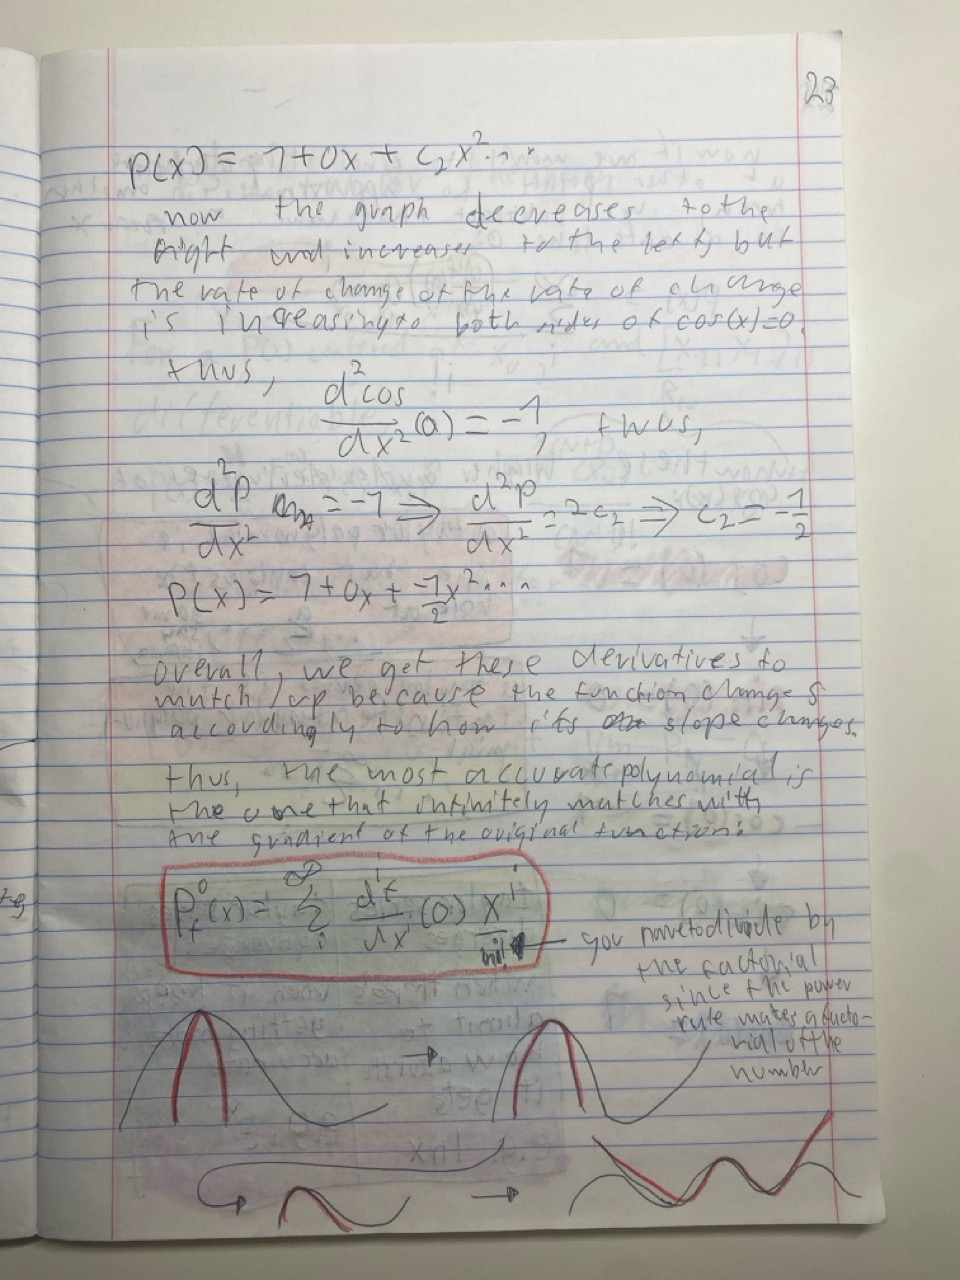 23
P(x) = 1+0x + c₂x²...
now the graph decreases to the
right and increases to the left, but
the rate of change of the rate of change
is increasing to both sides of cos(x)=0.
thus,
d²cos/dx² (0) = -1, thus,
d²P/dx² = -1 ⇒ d²P/dx² = 2c₂ ⇒ c₂ = -1/2
P(x) = 1+0x + -1/2 x²...
overall, we get these derivatives to
match up because the function changes
accordingly to how its slope changes.
thus, the most accurate polynomial is
the one that infinitely matches with
the gradient of the original function:
P⁰f(x) = ∞ Σ i dⁱf/dxⁱ (0) xⁱ/i!
you have to divide by
the factorial
since the power
rule makes a facto-
rial of the
number